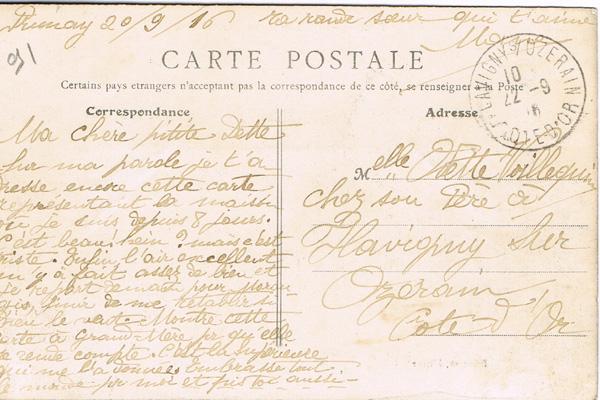 20/9/16 ta grande sœur qui t'aime
91
CARTE POSTALE
Certains pays etrangers n'acceptant pas la correspondance de ce côté, se renseigner à la Poste
FLAVIGNY S/OZERAIN
10
22 - 9
16
COTE D'OR
Correspondance
Ma chère pitite Dette
sur ma parole je t'a
dresse encre cette carte
représentant la maison
où je suis depuis 8 jours.
C'est beau! hein? mais c'est
triste. Enfin l'air excellent
m'y a fait assez de bien et
je repart demain pour
finir de me rétablir si
Dieu le veut. Montre cette
carte à Grand-Mère pr qu'elle
se rende compte. C'est la supérieure
qui me l'a donnée. Embrasse tout
le monde pr moi et pr toi aussi -
Adresse
Melle Odette Voillequin
chez son Père à
Flavigny sur
Ozerain
Cote d'Or